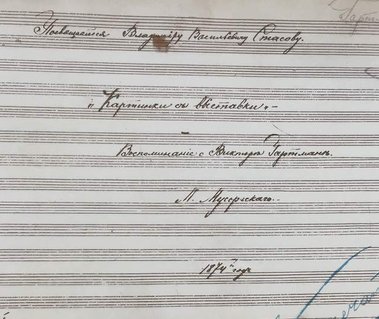 Гартм
Посвящается Владимиру Васильевичу Стасову.
"Картинки съ выставки"
Воспоминаніе о Викторѣ Гартманѣ.
М. Мусоргскаго.
1874ый годъ